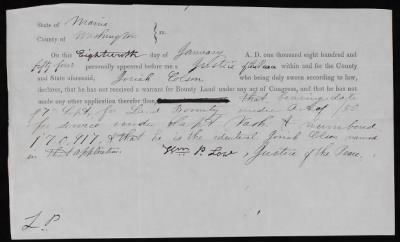 State of Maine
County of Washington } ss.
On this Eighteenth day of January A. D. one thousand eight hundred and
fifty four personally appeared before me a Justice of the Peace within and for the County
and State aforesaid, Josiah Colson who being duly sworn according to law,
declares, that he has not received a warrant for Bounty Land under any act of Congress, and that he has not
made any other application therefor than that bearing date
9th Sept. for Land Bounty under act of
for service under Capt Vash & numbered
170,917, & that he is the identical Josiah Colson named
in that application. Wm P. Low, Justice of the Peace.
L P